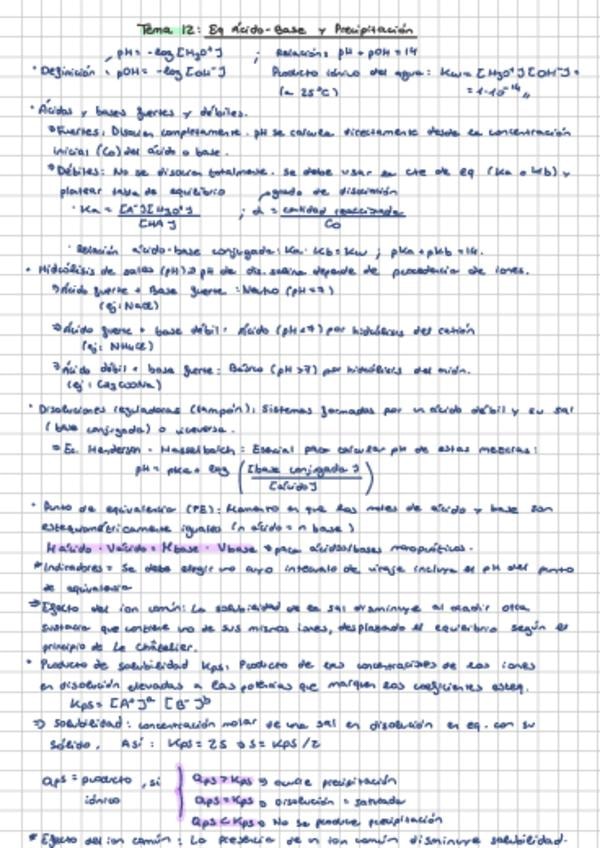 Tema 12: Eq ácido-Base y Precipitación
pH = -log [H3O+] ; Relación: pH + pOH = 14
· Definición: pOH = -log [OH-] Producto iónico del agua: Kw = [H3O+][OH-] =
(a 25°C) = 1·10^-14
· Ácidos y bases fuertes y débiles.
Fuertes: Disocian completamente. pH se calcula directamente desde la concentración
inicial (Co) del ácido o base.
Débiles: No se disocian totalmente. Se debe usar la cte de eq (Ka o Kb) y
plantear tabla de equilibrio grado de disociación
· Ka = [A-][H3O+] / [HA] ; α = cantidad reaccionada / Co
· Relación ácido-base conjugada: Ka · Kb = Kw ; pKa + pKb = 14.
· Hidrólisis de sales (pH) → pH de dis. salina depende de procedencia de iones.
→ ácido fuerte + Base fuerte: Neutro (pH = 7)
(ej: NaCl)
→ ácido fuerte + base débil: ácido (pH < 7) por hidrólisis del catión
(ej: NH4Cl)
→ ácido débil + base fuerte: Básico (pH > 7) por hidrólisis del anión.
(ej: CH3COONa)
· Disoluciones reguladoras (tampón): Sistemas formados por un ácido débil y su sal
(base conjugada) o viceversa.
Ec. Henderson - Hasselbalch: Esencial para calcular pH de estas mezclas:
pH = pKa + log ([base conjugada] / [ácido])
· Punto de equivalencia (PE): Momento en que los moles de ácido y base son
estequiométricamente iguales (n ácido = n base)
Mácido · Vácido = Mbase · Vbase → para ácidos/bases monopróticos.
* Indicadores = Se debe elegir uno cuyo intervalo de viraje incluya el pH del punto
de equivalencia
⇒ Efecto del ion común: La solubilidad de la sal disminuye al añadir otra
sustancia que contiene uno de sus mismos iones, desplazando el equilibrio según el
principio de Le Châtelier.
· Producto de solubilidad Kps: Producto de las concentraciones de los iones
en disolución elevadas a las potencias que marquen los coeficientes esteq.
Kps = [A+]^a [B-]^b
⇒ Solubilidad: concentración molar de una sal en disolución en eq. con su
sólido. Así: Kps = 2S → S = Kps/2
Qps > Kps → ocurre precipitación
Qps = producto iónico, si Qps = Kps → Disolución = saturada
Qps < Kps → No se produce precipitación
* Efecto del ion común: La presencia de un ion común disminuye solubilidad.